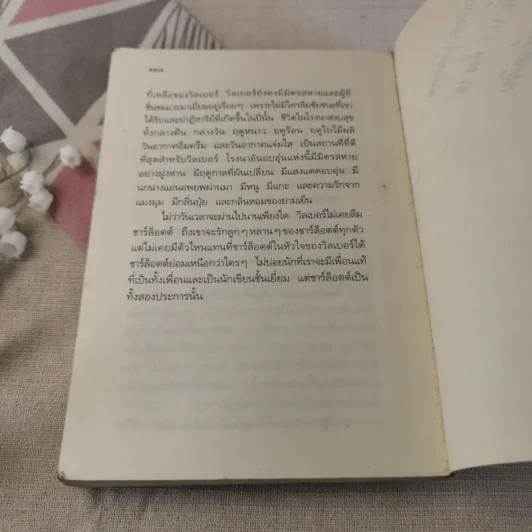 ที่เหลือของวิลเบอร์ วิลเบอร์ยังคงมีมิตรสหายและผู้ที่
ชื่นชมแวะมาเยี่ยมอยู่เรื่อยๆ เพราะไม่มีใครลืมชัยชนะที่เขา
ได้รับและปาฏิหาริย์ที่เกิดขึ้นในปีนั้น ชีวิตในโรงนาสงบสุข
ทั้งกลางคืน กลางวัน ฤดูหนาว ฤดูร้อน ฤดูใบไม้ผลิ
วันอากาศอึมครึม และวันอากาศแจ่มใส เป็นสถานที่ที่ดี
ที่สุดสำหรับวิลเบอร์ โรงนาอันอบอุ่นแห่งนี้มีมิตรสหาย
อย่างฝูงห่าน มีฤดูกาลที่ผันเปลี่ยน มีแสงแดดอบอุ่น มี
นกนางแอ่นอพยพผ่านมา มีหนู มีแกะ และความรักจาก
แมงมุม มีกลิ่นปุ๋ย และกลิ่นหอมของยามเย็น
ไม่ว่าวันเวลาจะผ่านไปนานเพียงใด วิลเบอร์ไม่เคยลืม
ชาร์ล็อตต์ ถึงเขาจะรักลูกๆ หลานๆ ของชาร์ล็อตต์ทุกตัว
แต่ไม่เคยมีตัวไหนแทนที่ชาร์ล็อตต์ในหัวใจของวิลเบอร์ได้
ชาร์ล็อตต์ย่อมเหนือกว่าใครๆ ไม่บ่อยนักที่เราจะมีเพื่อนแท้
ที่เป็นทั้งเพื่อนและเป็นนักเขียนชั้นเยี่ยม แต่ชาร์ล็อตต์เป็น
ทั้งสองประการนั้น